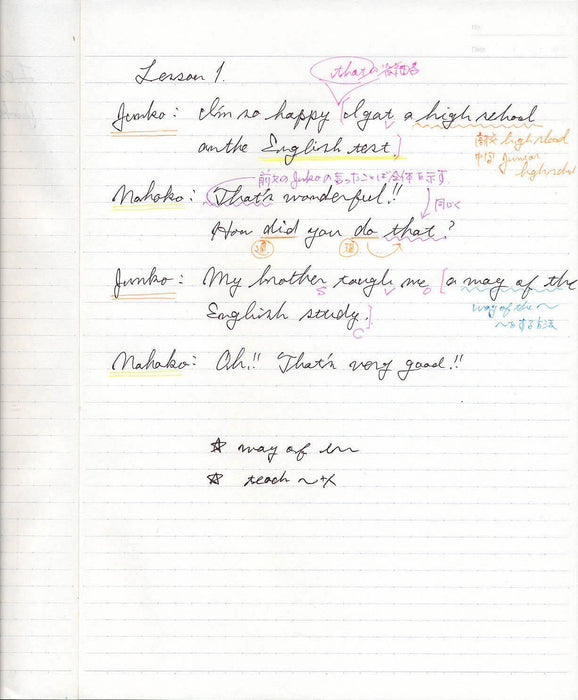 Lesson 1.
thatの省略
Junko: I'm so happy [I got a high school
on the English test.]
高校 high school
中学 junior
high school
前文のJunkoの言ったことば全体を示す
Nahoko: That's wonderful!!
同じく
How did you do that?
過 現
Junko: My brother taugh me [a way of the
S V O
English study.]
C
way of the ～
～する方法
Nahoko: Oh!! That's very good!!
☆ way of
☆ teach ～+X